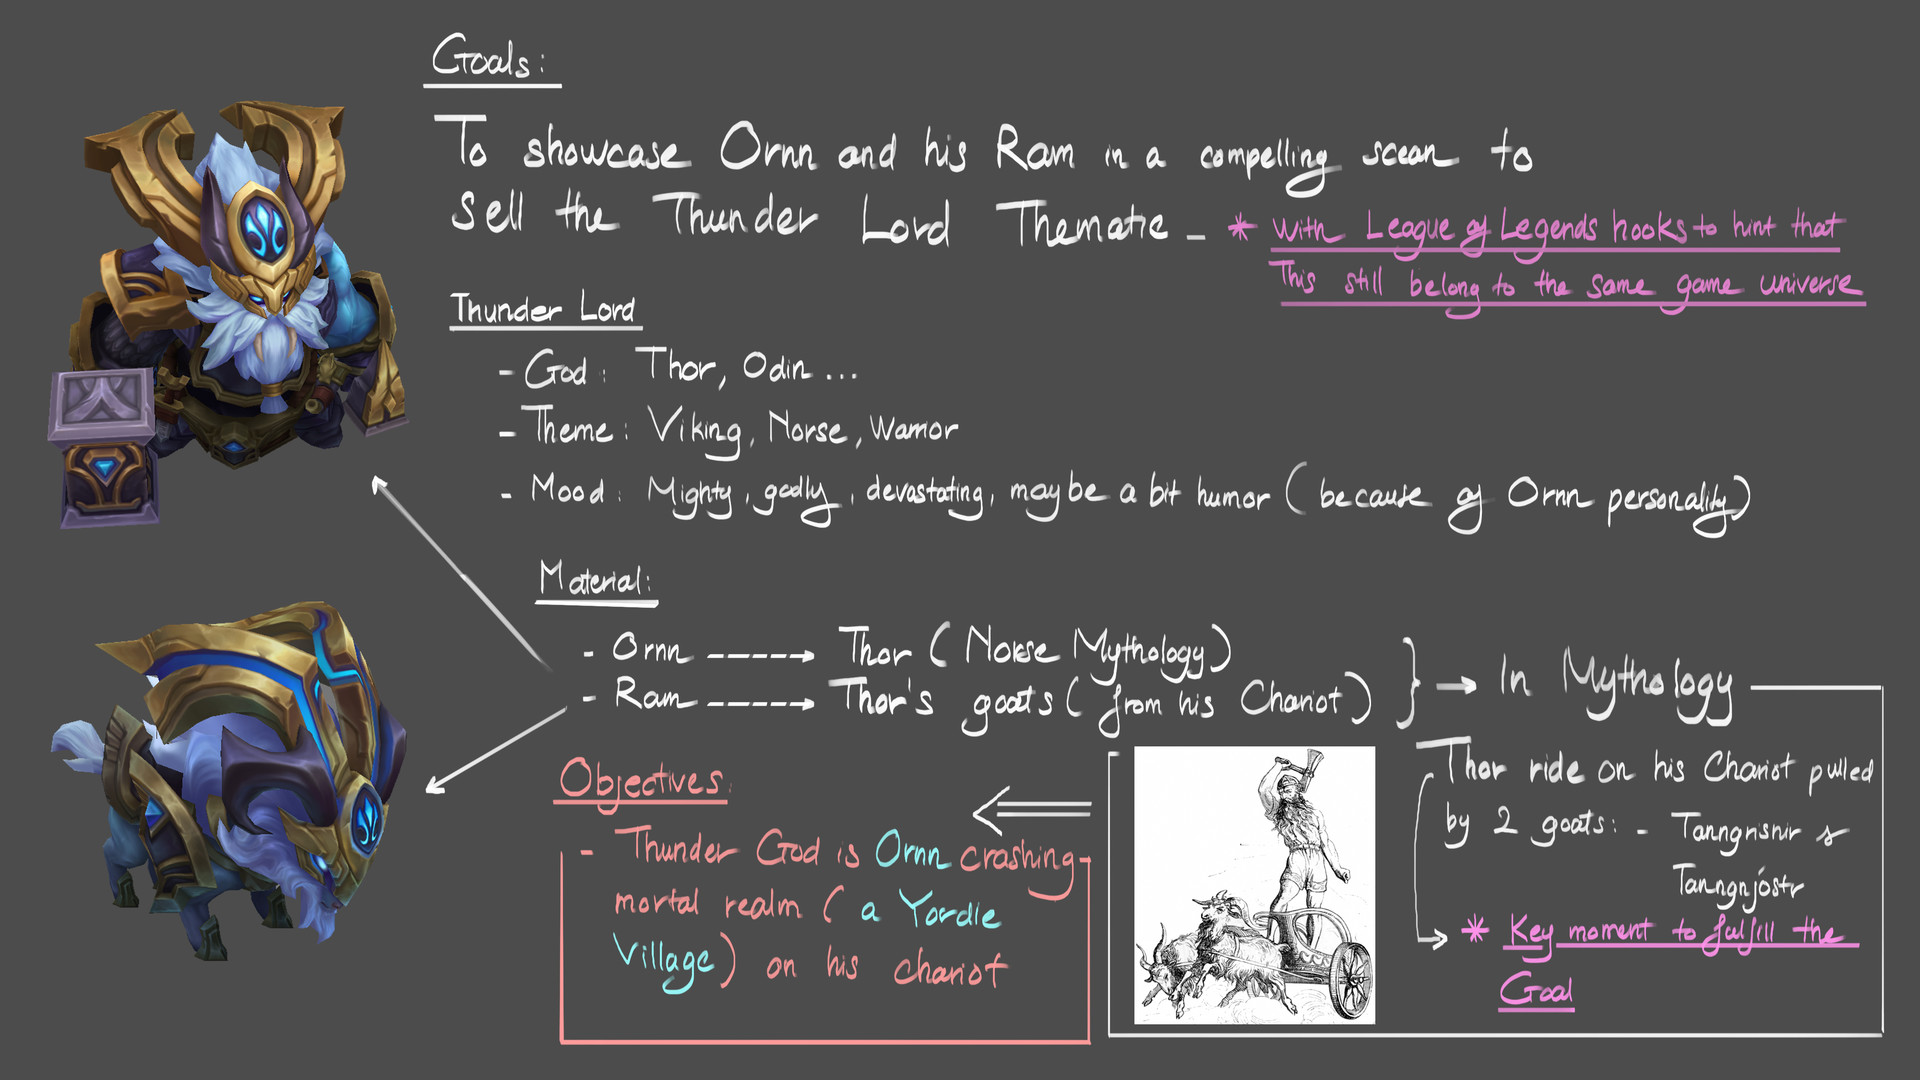 Goals:
To showcase Ornn and his Ram in a compelling scean to
Sell the Thunder Lord Thematic - * with League of Legends hooks to hint that
This still belong to the same game universe
Thunder Lord
- God: Thor, Odin ...
- Theme: Viking, Norse, Warrior
- Mood: Mighty, godly, devastating, maybe a bit humor (because of Ornn personality)
Material:
- Ornn -----> Thor (Norse Mythology)
- Ram -----> Thor's goats (from his Chariot) } → In Mythology
Thor ride on his Chariot pulled
by 2 goats: - Tanngrisnir &
Tanngnjóstr
* Key moment to fulfill the
Goal
Objectives:
- Thunder God is Ornn crashing
mortal realm (a Yordle
Village) on his chariot